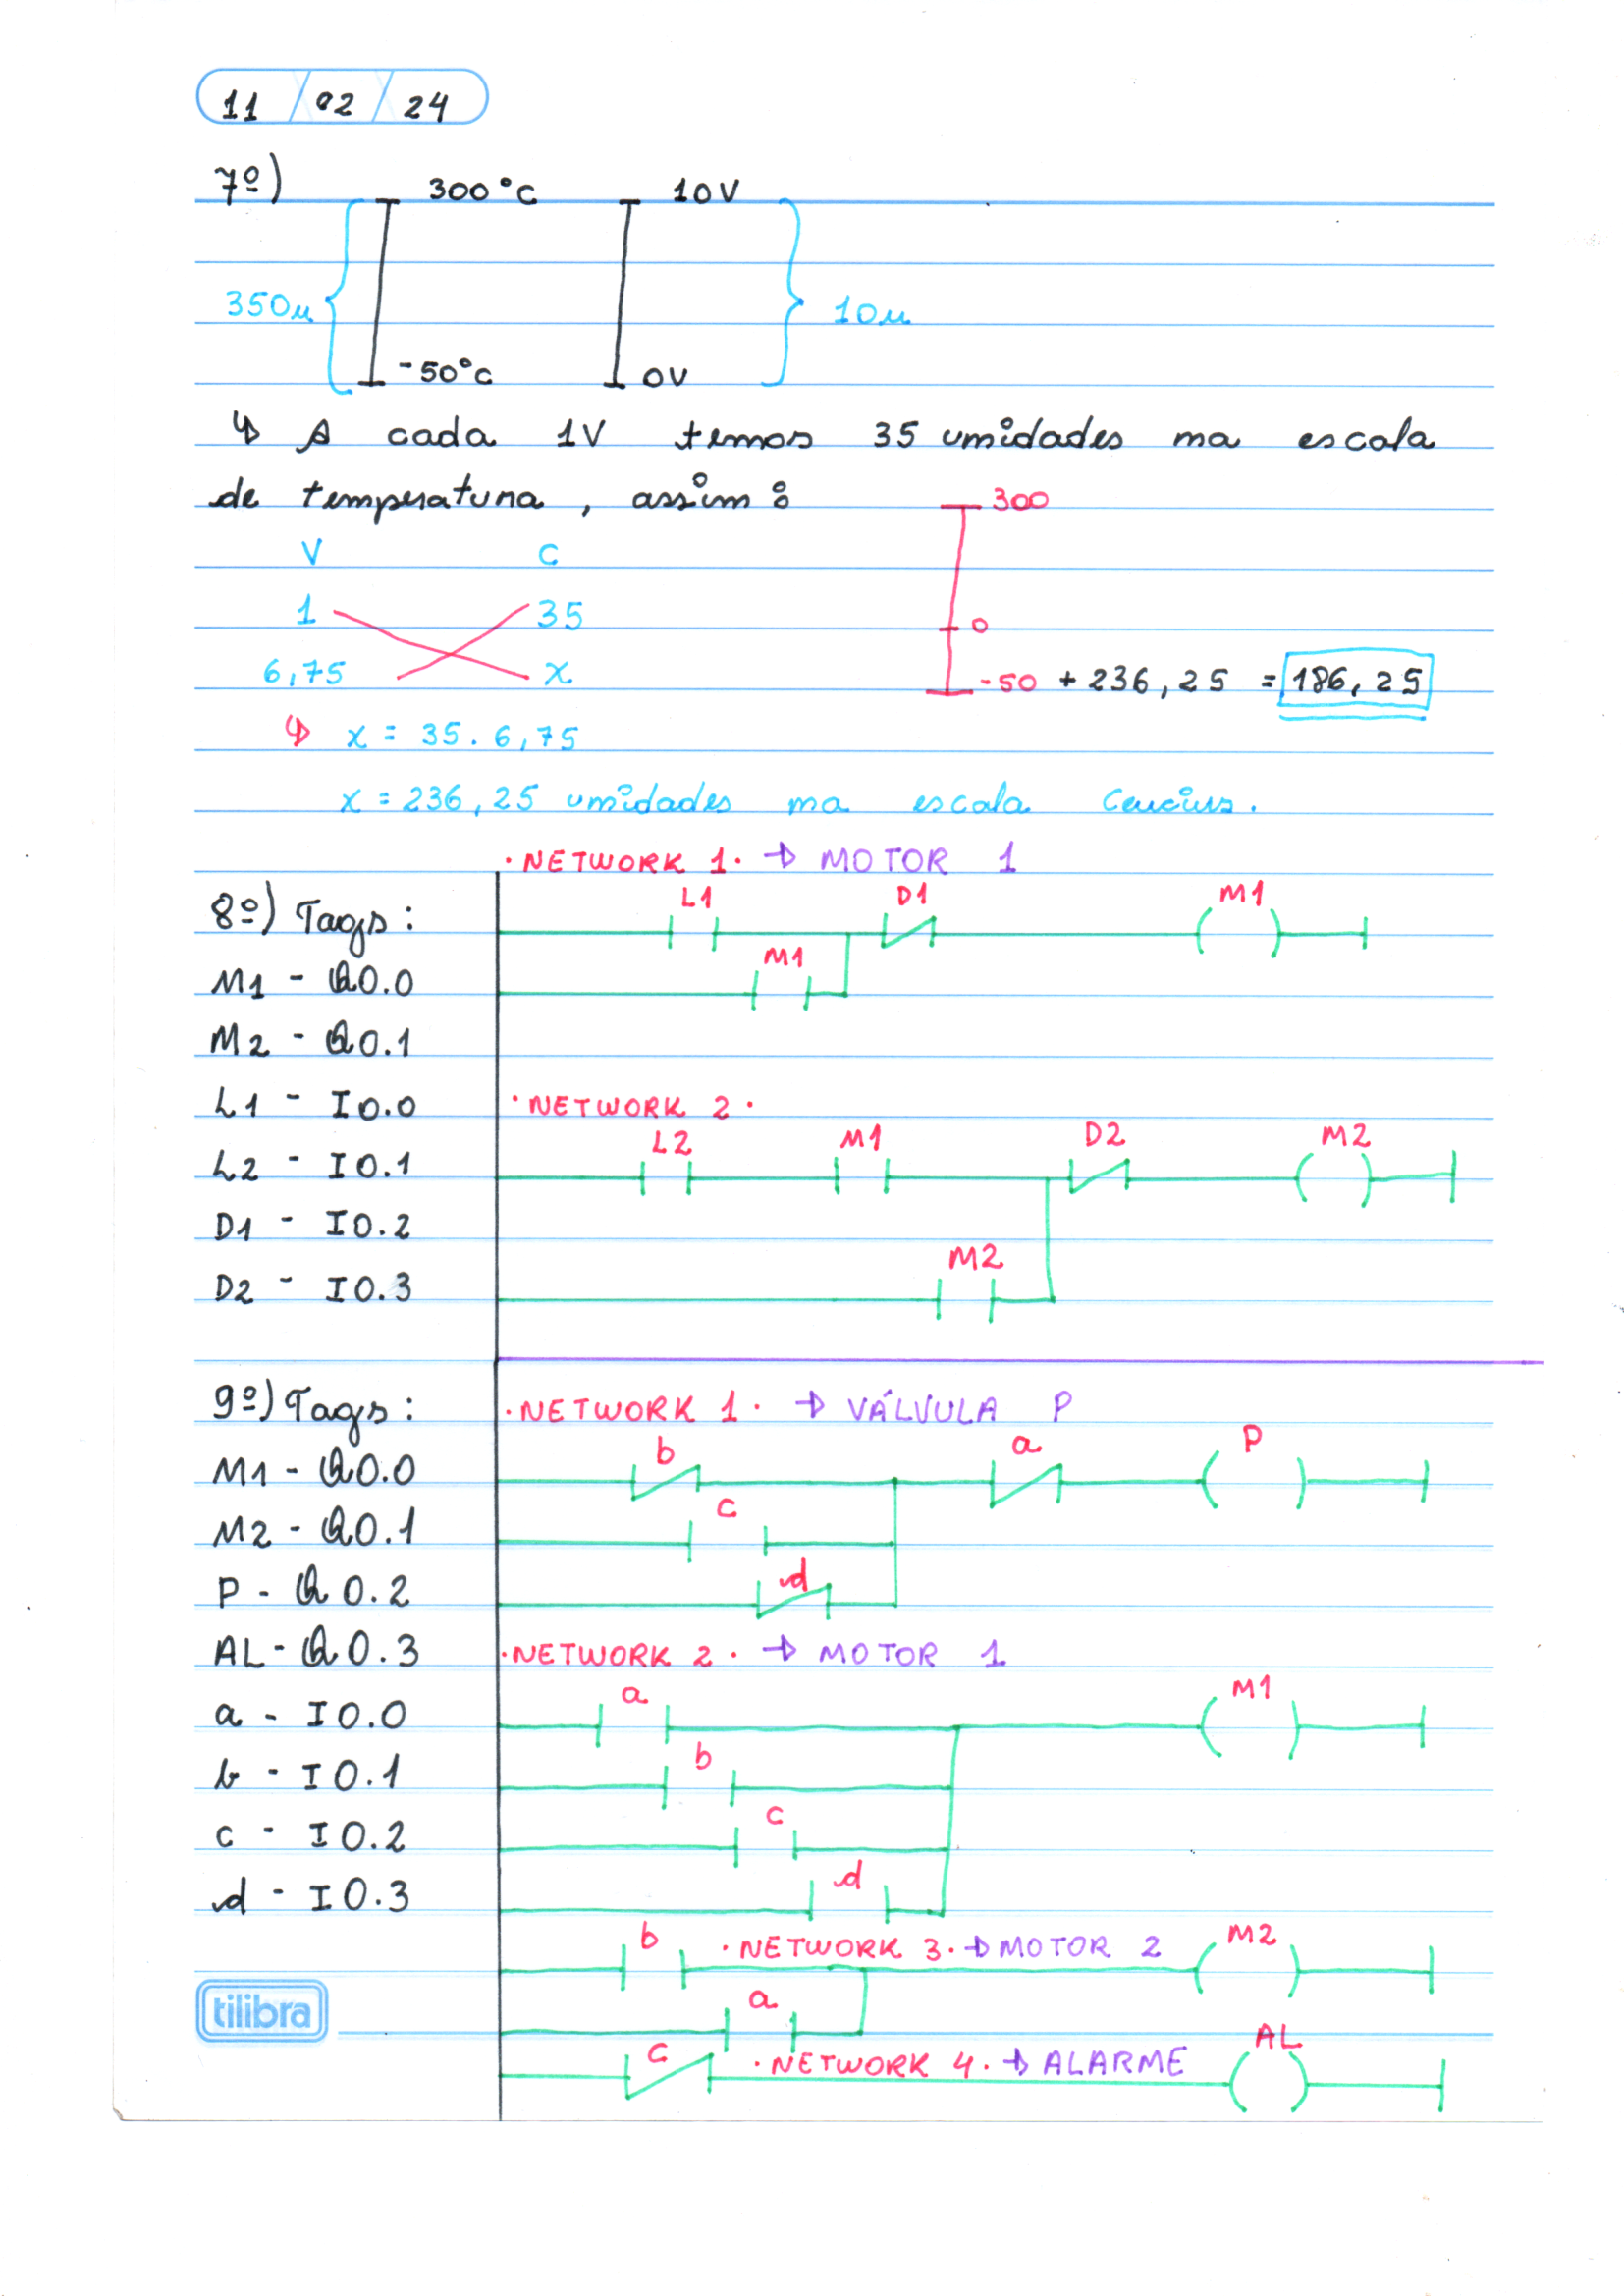 11 / 02 / 24
7º) 300°C 10V
350u 10u
-50°C 0V
↳ A cada 1V temos 35 unidades na escala
de temperatura, assim: 300
V C
1 35 0
6,75 x -50 + 236,25 = 186,25
↳ x = 35.6,75
x = 236,25 unidades na escala
·NETWORK 1· → MOTOR 1
8º) Tags: L1 D1 M1
M1 - Q0.0 M1
M2 - Q0.1
L1 - I0.0 ·NETWORK 2·
L2 - I0.1 L2 M1 D2 M2
D1 - I0.2
D2 - I0.3 M2
9º) Tags: ·NETWORK 1· → VÁLVULA P
M1 - Q0.0 b a P
M2 - Q0.1 c
P - Q0.2 d
AL - Q0.3 ·NETWORK 2· → MOTOR 1
a - I0.0 a M1
b - I0.1 b
c - I0.2 c
d - I0.3 d
b ·NETWORK 3· → MOTOR 2 M2
tilibra a
c ·NETWORK 4· → ALARME AL